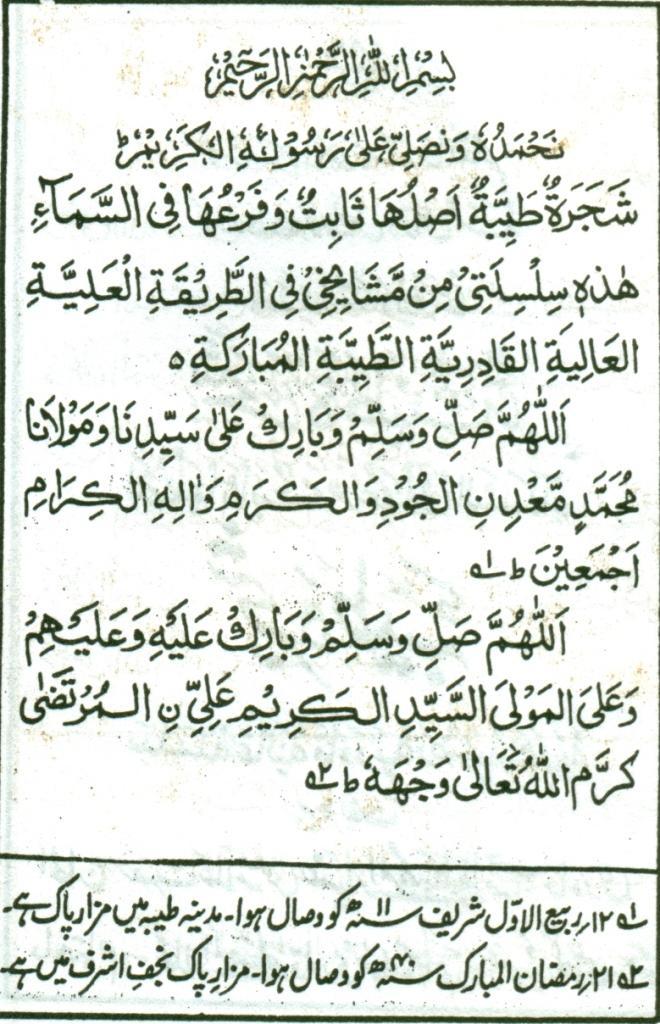 بِسْمِ اللّٰهِ الرَّحْمٰنِ الرَّحِیْمِ
نَحْمَدُهٗ وَنُصَلِّیْ عَلٰی رَسُوْلِهِ الْکَرِیْمِ ط
شَجَرَةٌ طَیِّبَةٌ اَصْلُهَا ثَابِتٌ وَّفَرْعُهَا فِی السَّمَآءِ
هٰذِهٖ سِلْسِلَتِیْ مِنْ مَّشَایِخِیْ فِی الطَّرِیْقَةِ الْعَلِیَّةِ
الْعَالِیَةِ الْقَادِرِیَّةِ الطَّیِّبَةِ الْمُبَارَکَةِ ہ
اَللّٰهُمَّ صَلِّ وَسَلِّمْ وَبَارِكْ عَلٰی سَیِّدِنَا وَمَوْلَانَا
مُحَمَّدٍ مَّعْدِنِ الْجُوْدِ وَالْکَرَمِ وَاٰلِهِ الْکِرَامِ
اَجْمَعِیْنَ ط ؎۱
اَللّٰهُمَّ صَلِّ وَسَلِّمْ وَبَارِكْ عَلَیْهِ وَعَلَیْهِمْ
وَعَلَی الْمَوْلَی السَّیِّدِ الْکَرِیْمِ عَلِیِّ نِ الْمُرْتَضٰی
کَرَّمَ اللّٰهُ تَعَالٰی وَجْهَهٗ ط ؎۲
؎۱ ۱۲؍ ربیع الاوّل شریف ۱۱ سنہ ھ کو وصال ہوا۔ مدینہ طیبہ میں مزار پاک ہے۔
؎۲ ۲۱؍ رمضان المبارک ۴۰ سنہ ھ کو وصال ہوا۔ مزارِ پاک نجفِ اشرف میں ہے۔